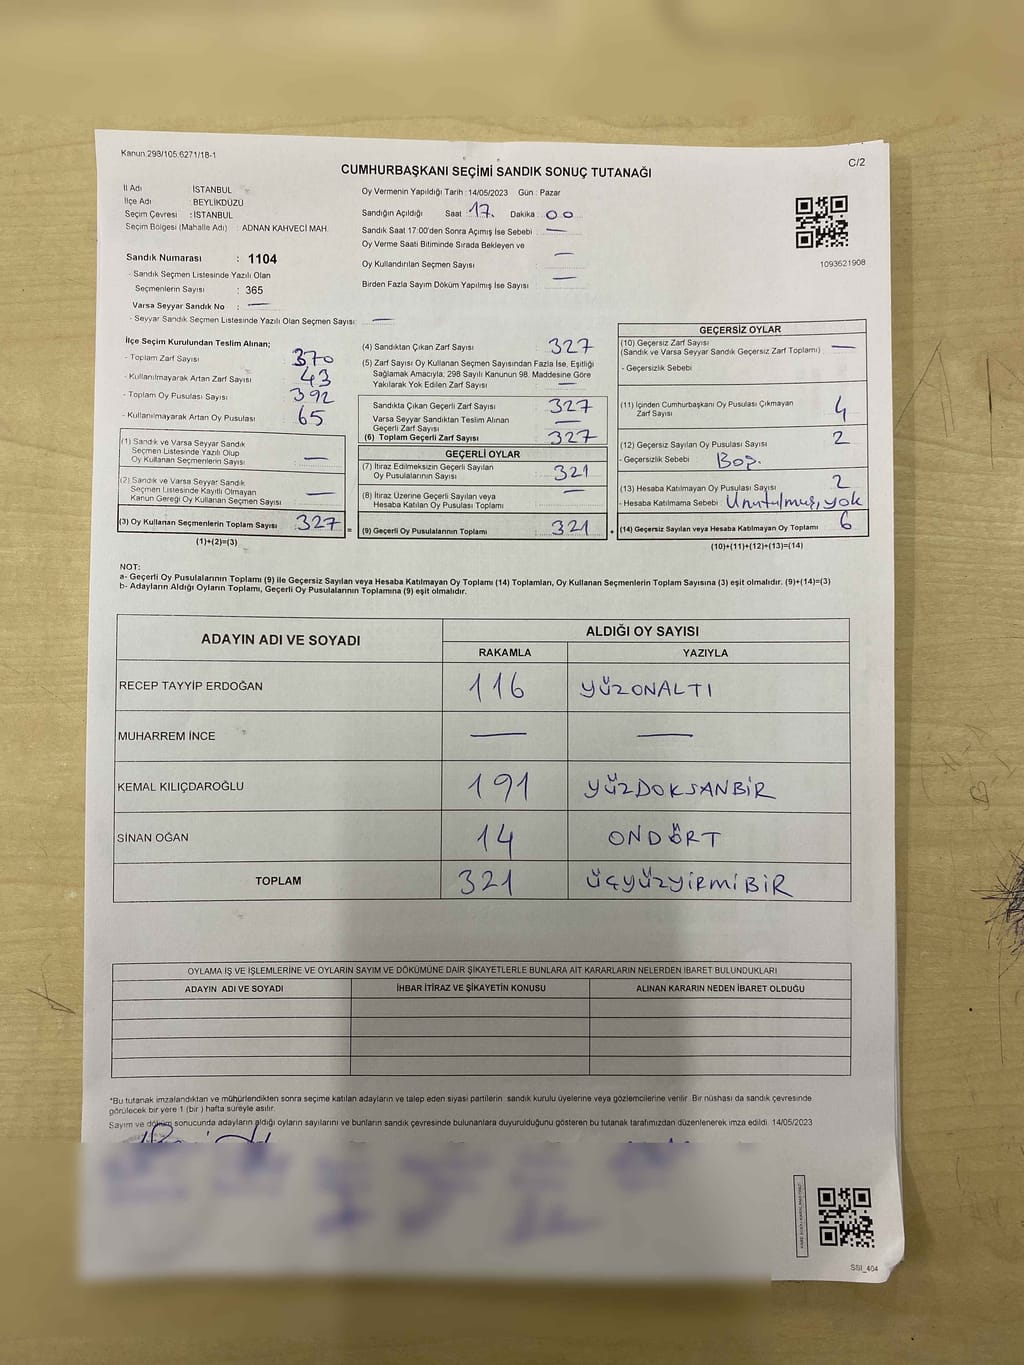 Kanun.298/105.6271/18-1
C/2
CUMHURBAŞKANI SEÇİMİ SANDIK SONUÇ TUTANAĞI
İl Adı : İSTANBUL
İlçe Adı : BEYLİKDÜZÜ
Seçim Çevresi : İSTANBUL
Seçim Bölgesi (Mahalle Adı) : ADNAN KAHVECİ MAH.
Sandık Numarası : 1104
- Sandık Seçmen Listesinde Yazılı Olan
Seçmenlerin Sayısı : 365
Varsa Seyyar Sandık No : —
- Seyyar Sandık Seçmen Listesinde Yazılı Olan Seçmen Sayısı: —
Oy Vermenin Yapıldığı Tarih : 14/05/2023 Gün : Pazar
Sandığın Açıldığı Saat 17. Dakika : 00
Sandık Saat 17:00'den Sonra Açımış İse Sebebi : —
Oy Verme Saati Bitiminde Sırada Bekleyen ve
Oy Kullandırılan Seçmen Sayısı : —
Birden Fazla Sayım Döküm Yapılmış İse Sayısı : —
1093621908
İlçe Seçim Kurulundan Teslim Alınan;
- Toplam Zarf Sayısı : 370
- Kullanılmayarak Artan Zarf Sayısı : 43
- Toplam Oy Pusulası Sayısı : 392
- Kullanılmayarak Artan Oy Pusulası : 65
(1) Sandık ve Varsa Seyyar Sandık
Seçmen Listesinde Yazılı Olup
Oy Kullanan Seçmenlerin Sayısı : —
(2) Sandık ve Varsa Seyyar Sandık
Seçmen Listesinde Kayıtlı Olmayan
Kanun Gereği Oy Kullanan Seçmen Sayısı : —
(3) Oy Kullanan Seçmenlerin Toplam Sayısı : 327
(1)+(2)=(3)
(4) Sandıktan Çıkan Zarf Sayısı : 327
(5) Zarf Sayısı Oy Kullanan Seçmen Sayısından Fazla İse, Eşitliği
Sağlamak Amacıyla; 298 Sayılı Kanunun 98. Maddesine Göre
Yakılarak Yok Edilen Zarf Sayısı : —
Sandıkta Çıkan Geçerli Zarf Sayısı : 327
Varsa Seyyar Sandıktan Teslim Alınan
Geçerli Zarf Sayısı : —
(6) Toplam Geçerli Zarf Sayısı : 327
GEÇERLİ OYLAR
(7) İtiraz Edilmeksizin Geçerli Sayılan
Oy Pusulalarının Sayısı : 321
(8) İtiraz Üzerine Geçerli Sayılan veya
Hesaba Katılan Oy Pusulası Toplamı : —
=
(9) Geçerli Oy Pusulalarının Toplamı : 321
+
GEÇERSİZ OYLAR
(10) Geçersiz Zarf Sayısı
(Sandık ve Varsa Seyyar Sandık Geçersiz Zarf Toplamı) : —
- Geçersizlik Sebebi
(11) İçinden Cumhurbaşkanı Oy Pusulası Çıkmayan
Zarf Sayısı : 4
(12) Geçersiz Sayılan Oy Pusulası Sayısı : 2
- Geçersizlik Sebebi : Boş.
(13) Hesaba Katılmayan Oy Pusulası Sayısı : 2
- Hesaba Katılmama Sebebi : Unutulmuş, yok
(14) Geçersiz Sayılan veya Hesaba Katılmayan Oy Toplamı : 6
(10)+(11)+(12)+(13)=(14)
NOT:
a- Geçerli Oy Pusulalarının Toplamı (9) ile Geçersiz Sayılan veya Hesaba Katılmayan Oy Toplamı (14) Toplamları, Oy Kullanan Seçmenlerin Toplam Sayısına (3) eşit olmalıdır. (9)+(14)=(3)
b- Adayların Aldığı Oyların Toplamı, Geçerli Oy Pusulalarının Toplamına (9) eşit olmalıdır.
ADAYIN ADI VE SOYADI
ALDIĞI OY SAYISI
RAKAMLA YAZIYLA
RECEP TAYYİP ERDOĞAN 116 YÜZONALTI
MUHARREM İNCE — —
KEMAL KILIÇDAROĞLU 191 YÜZDOKSANBİR
SİNAN OĞAN 14 ONDÖRT
TOPLAM 321 ÜÇYÜZYİRMİBİR
OYLAMA İŞ VE İŞLEMLERİNE VE OYLARIN SAYIM VE DÖKÜMÜNE DAİR ŞİKAYETLERLE BUNLARA AİT KARARLARIN NELERDEN İBARET BULUNDUKLARI
ADAYIN ADI VE SOYADI İHBAR İTİRAZ VE ŞİKAYETİN KONUSU ALINAN KARARIN NEDEN İBARET OLDUĞU
*Bu tutanak imzalandıktan ve mühürlendikten sonra seçime katılan adayların ve talep eden siyasi partilerin sandık kurulu üyelerine veya gözlemcilerine verilir. Bir nüshası da sandık çevresinde
görülecek bir yere 1 (bir ) hafta süreyle asılır.
Sayım ve döküm sonucunda adayların aldığı oyların sayılarını ve bunların sandık çevresinde bulunanlara duyurulduğunu gösteren bu tutanak tarafımızdan düzenlenerek imza edildi. 14/05/2023
SSI_404